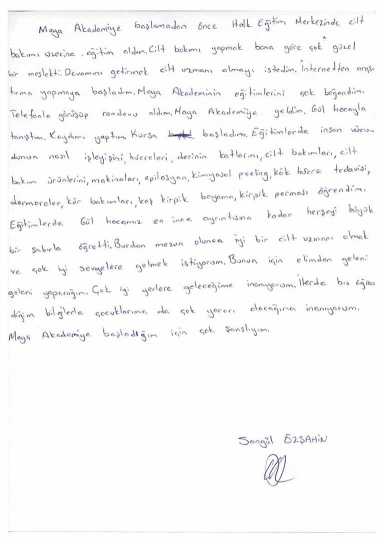 Maya Akademiye başlamadan önce Halk Eğitim Merkezinde cilt
bakımı üzerine eğitim aldım. Cilt bakımı yapmak bana göre çok güzel
bir meslekti. Devamını getirmek cilt uzmanı olmayı istedim. İnternetten araş
tırma yapmaya başladım. Maya Akademinin eğitimlerini çok beğendim.
Telefonla görüşüp randevu aldım. Maya Akademiye geldim. Gül hocayla
tanıştım. Kaydımı yaptım Kursa başladım. Eğitimlerde insan vücu
dunun nasıl işleyişini, hücreleri, derinin katlarını, cilt bakımları, cilt
bakım ürünlerini, makinaları, epilasyon, kimyasal peeling, kök hücre tedavisi,
dermaroler, kür bakımları, kaş kirpik boyama, kirpik perması öğrendim.
Eğitimlerde Gül hocamız en ince ayrıntısına kadar herşeyi büyük
bir sabırla öğretti. Burdan mezun olunca iyi bir cilt uzmanı olmak
ve çok iyi seviyelere gelmek istiyorum. Bunun için elimden geleni
yapacağım. Çok iyi yerlere geleceğime inanıyorum. İlerde bu öğren
diğim bilgilerle çocuklarıma da çok yararı olacağına inanıyorum.
Maya Akademiye başladığım için çok şanslıyım.
Songül ÖZŞAHİN